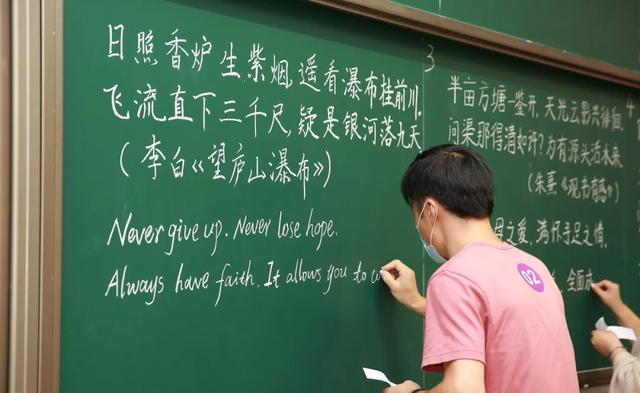 日照香炉生紫烟,遥看瀑布挂前川.
飞流直下三千尺,疑是银河落九天
(李白《望庐山瀑布》)
Never give up. Never lose hope.
Always have faith. It allows you to
3
半亩方塘一鉴开,天光云影共徘徊.
问渠那得清如许?为有源头活水来
(朱熹《观书有感》)
母之爱,满怀手足之情.
全面
4
02